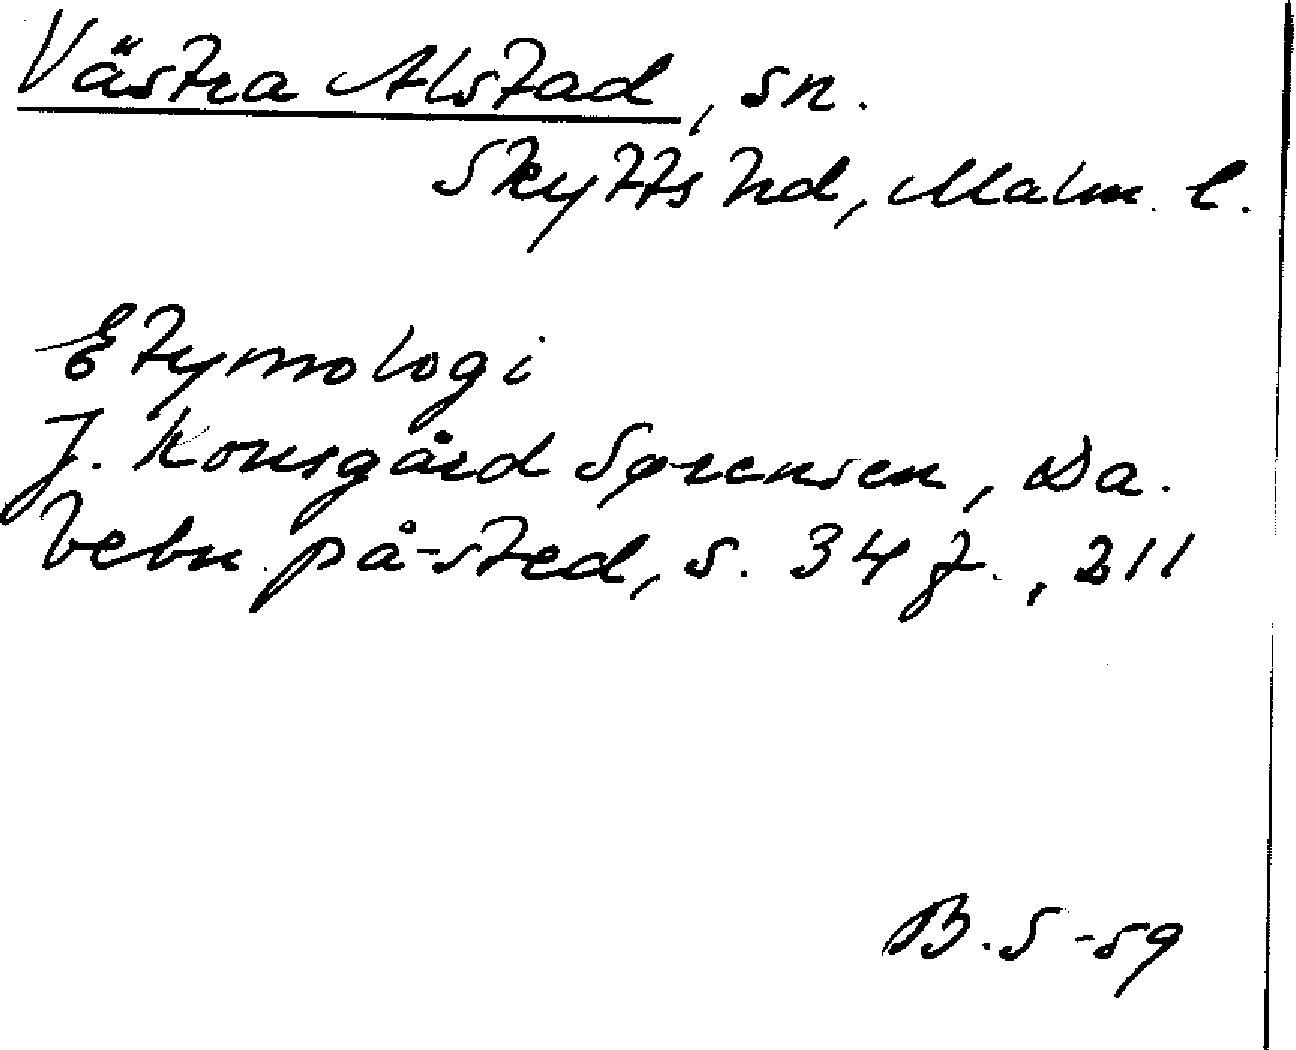 Västra Alstad, sn.
Skytts hd, Malm. l.
Etymologi
J. Kousgård Sørensen, Da.
bebn. på -sted, s. 34 f., 211
B. S-59